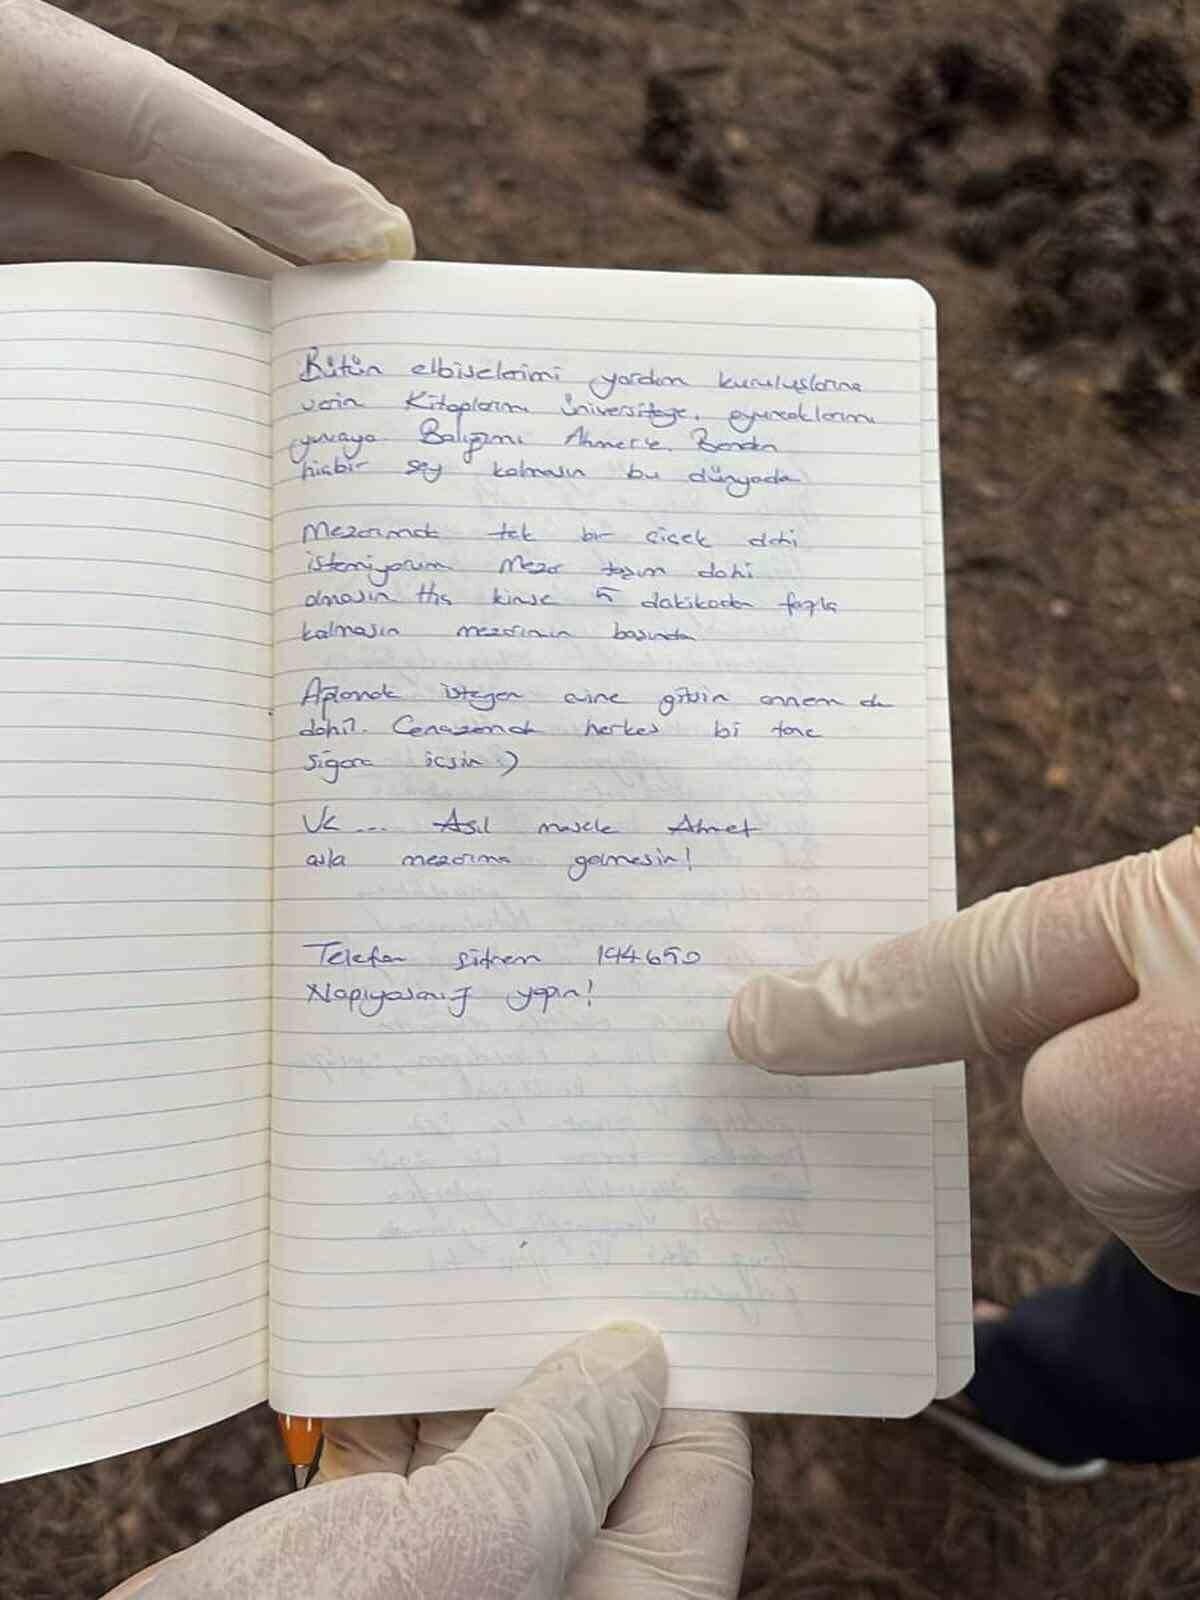 Bütün elbiselerimi yardım kuruluşlarına
verin Kitaplarımı üniversiteye, oyuncaklarımı
yuvaya Balığımı Ahmet'e. Benden
hiçbir şey kalmasın bu dünyada
Mezarımda tek bir çiçek dahi
istemiyorum Mezar taşım dahi
olmasın Hiç kimse 5 dakikadan fazla
kalmasın mezarımın başında
Ağlamak isteyen evine gitsin annem de
dahil. Cenazemde herkes bi tane
sigara içsin )
Ve ... Asıl mesele Ahmet
asla mezarıma gelmesin!
Telefon şifrem 194650
Napıyosanız yapın!